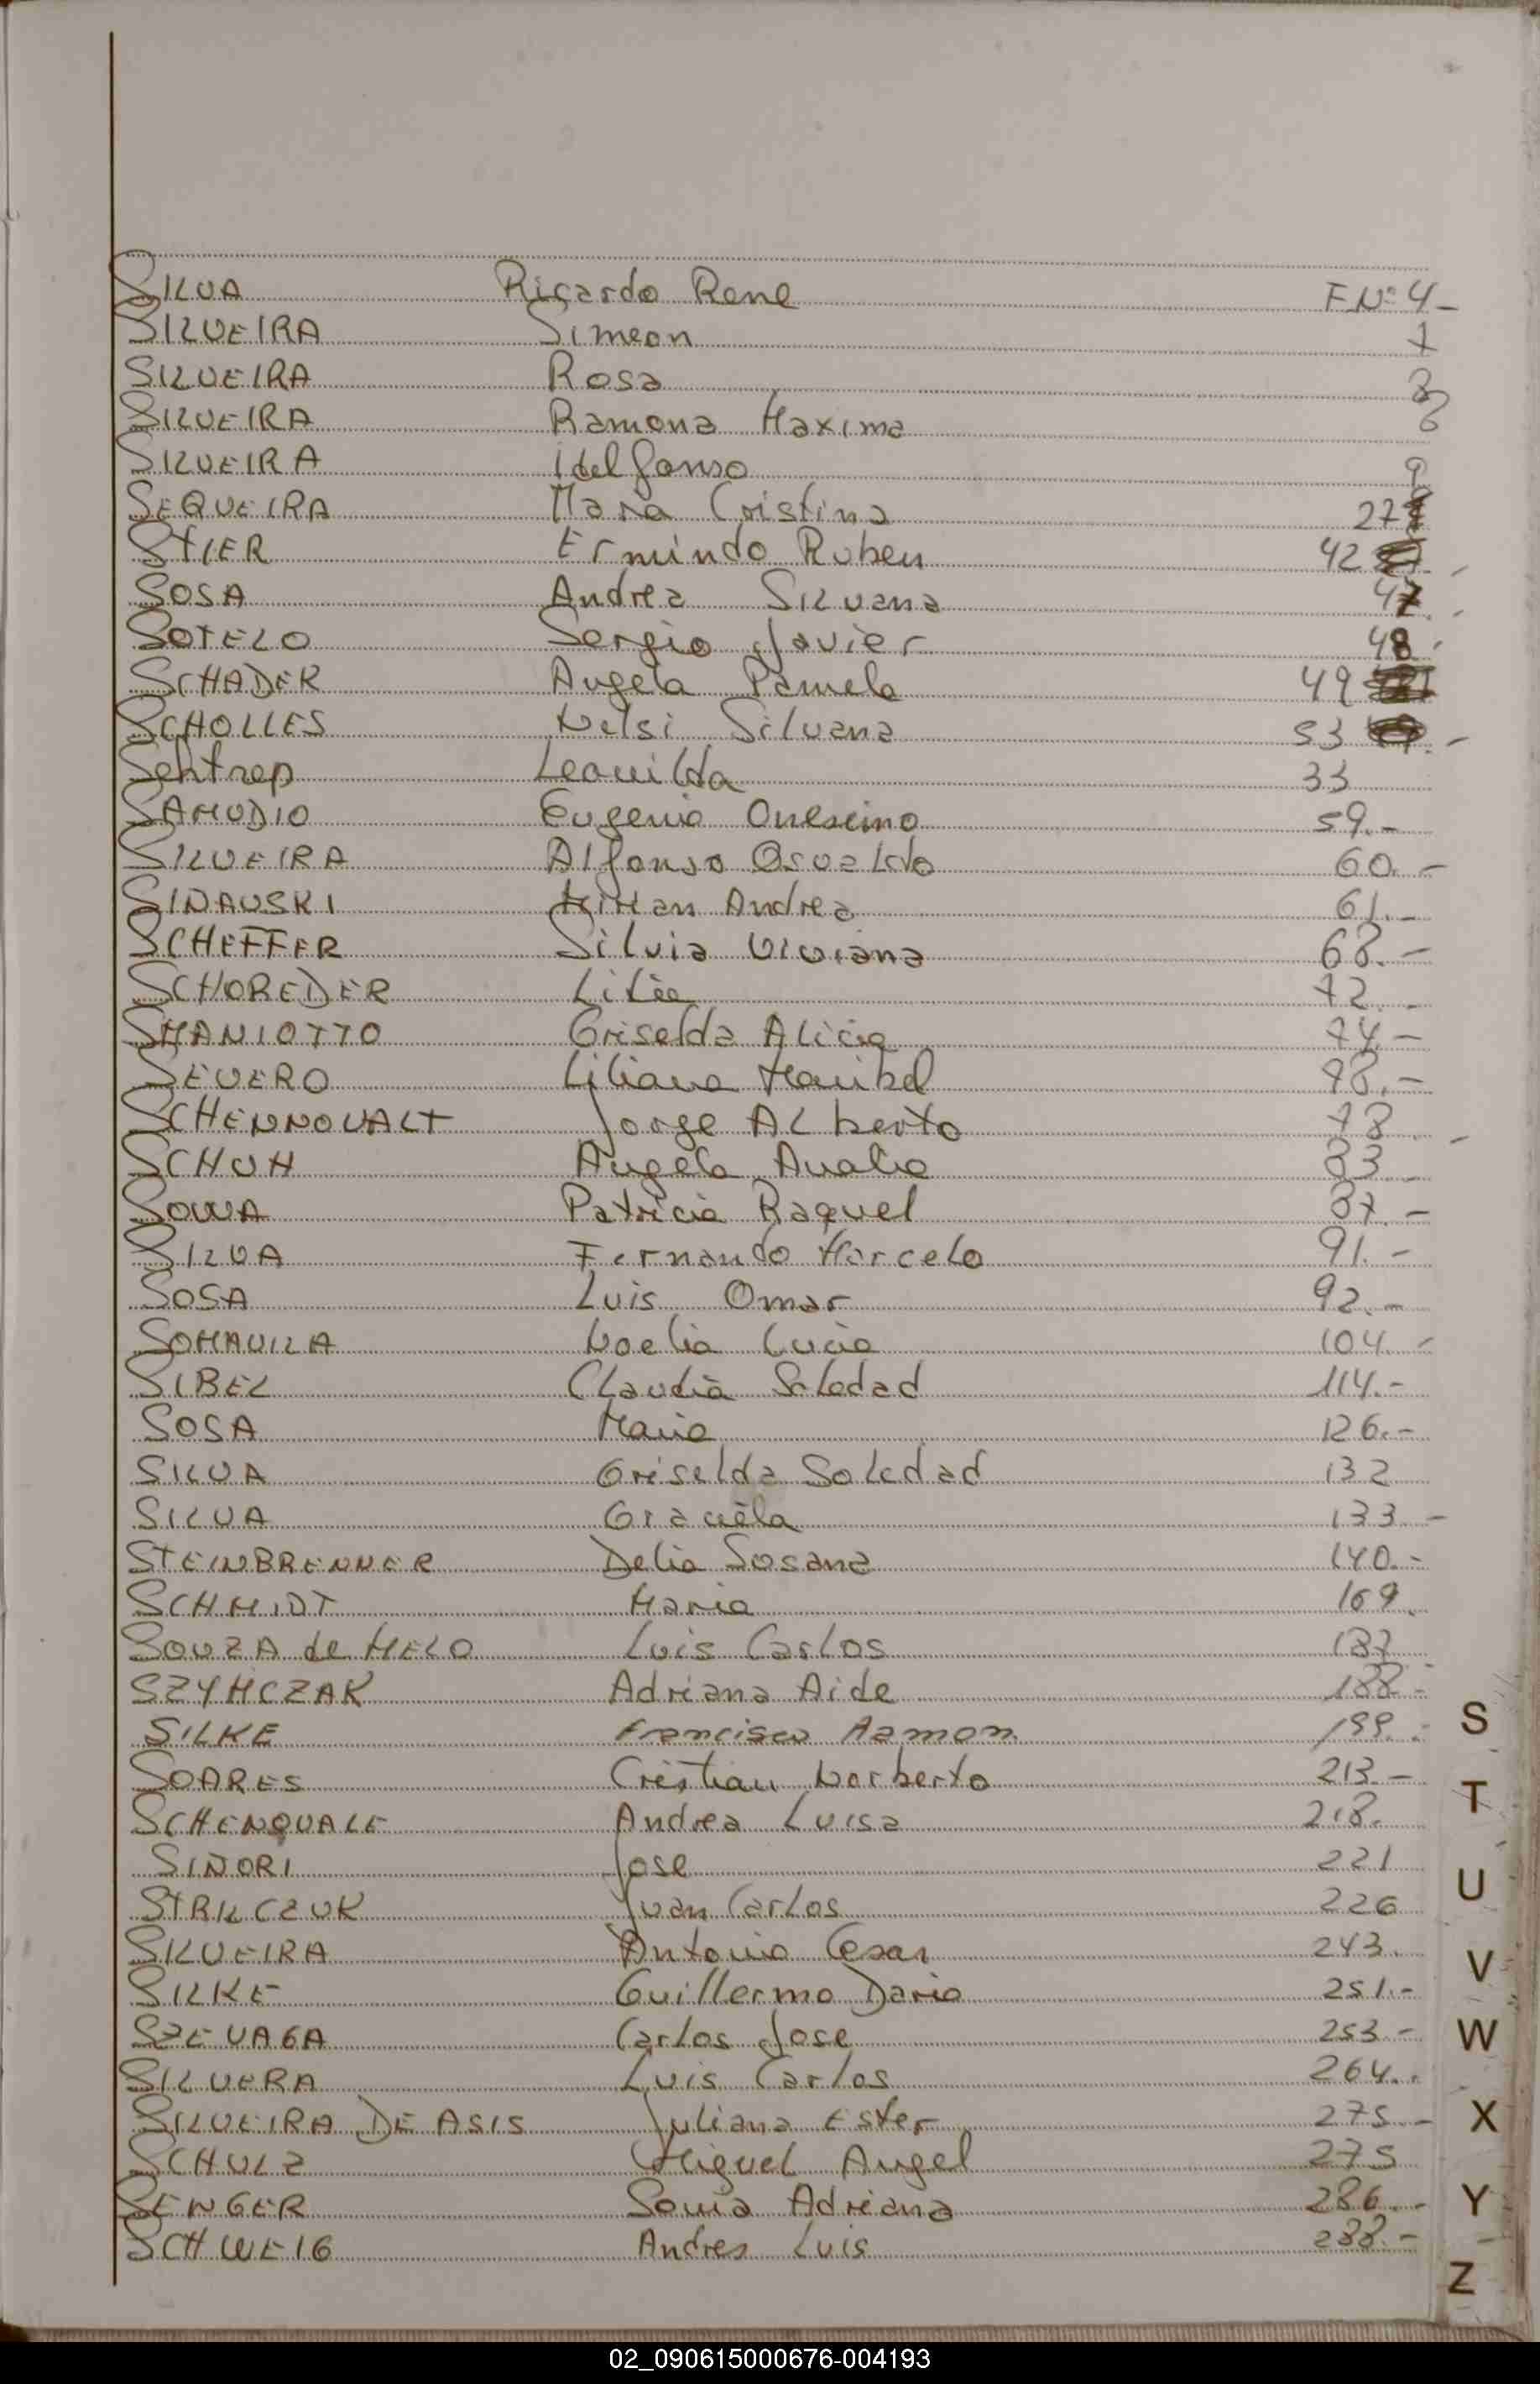 SILVA Ricardo Rene F.Nº 4-
SILVEIRA Simeon 7
SILVEIRA Rosa 8
SILVEIRA Ramona Maxima 8
SILVEIRA Idelfonso 9
SEQUEIRA Maria Cristina 27
STIER Ermindo Ruben 42
SOSA Andrea Silvana 47
SOTELO Sergio Javier 48
SCHADER Angela Pamela 49
SCHOLLES Nelsi Silvana 53 -
Leonilda 33
SAMUDIO Eugenio Onesimo 59.-
SILVEIRA Alfonso Osvaldo 60.-
SINAUSKI Mirian Andrea 61.-
SCHEFFER Silvia Viviana 68.-
SCHOREDER Lilia 72.-
SMANIOTTO Griselda Alicia 74.-
SEVERO Liliana Maribel 78.-
SCHENNOVALT Jorge Alberto 78 -
SCHUH Angela Analia 83
SOWA Patricia Raquel 87.-
SILVA Fernando Marcelo 91.-
SOSA Luis Omar 92.-
SOMAVILA Noelia Lucia 104.-
SIBEL Claudia Soledad 114.-
SOSA Maria 126.-
SILVA Griselda Soledad 132
SILVA Graciela 133 -
STEINBRENNER Delia Sosana 140.-
SCHMIDT Maria 169.
SOUZA de MELO Luis Carlos 187
SZYMCZAK Adriana Aide 188 -
SILKE Francisco Ramon 199.-
SOARES Cristian Norberto 213 -
SCHENQUALE Andrea Luisa 218.
SINORI Jose 221
STRILCZUK Juan Carlos 226
SILVEIRA Antonio Cesar 243.
SILKE Guillermo Dario 251.-
SZEVAGA Carlos Jose 253 -
SILVERA Luis Carlos 264..
SILVEIRA DE ASIS Juliana Ester 275.-
SCHULZ Miguel Angel 275
SENGER Sonia Adriana 286.-
SCHWEIG Andres Luis 288.-
S
T
U
V
W
X
Y
Z
02_090615000676-004193